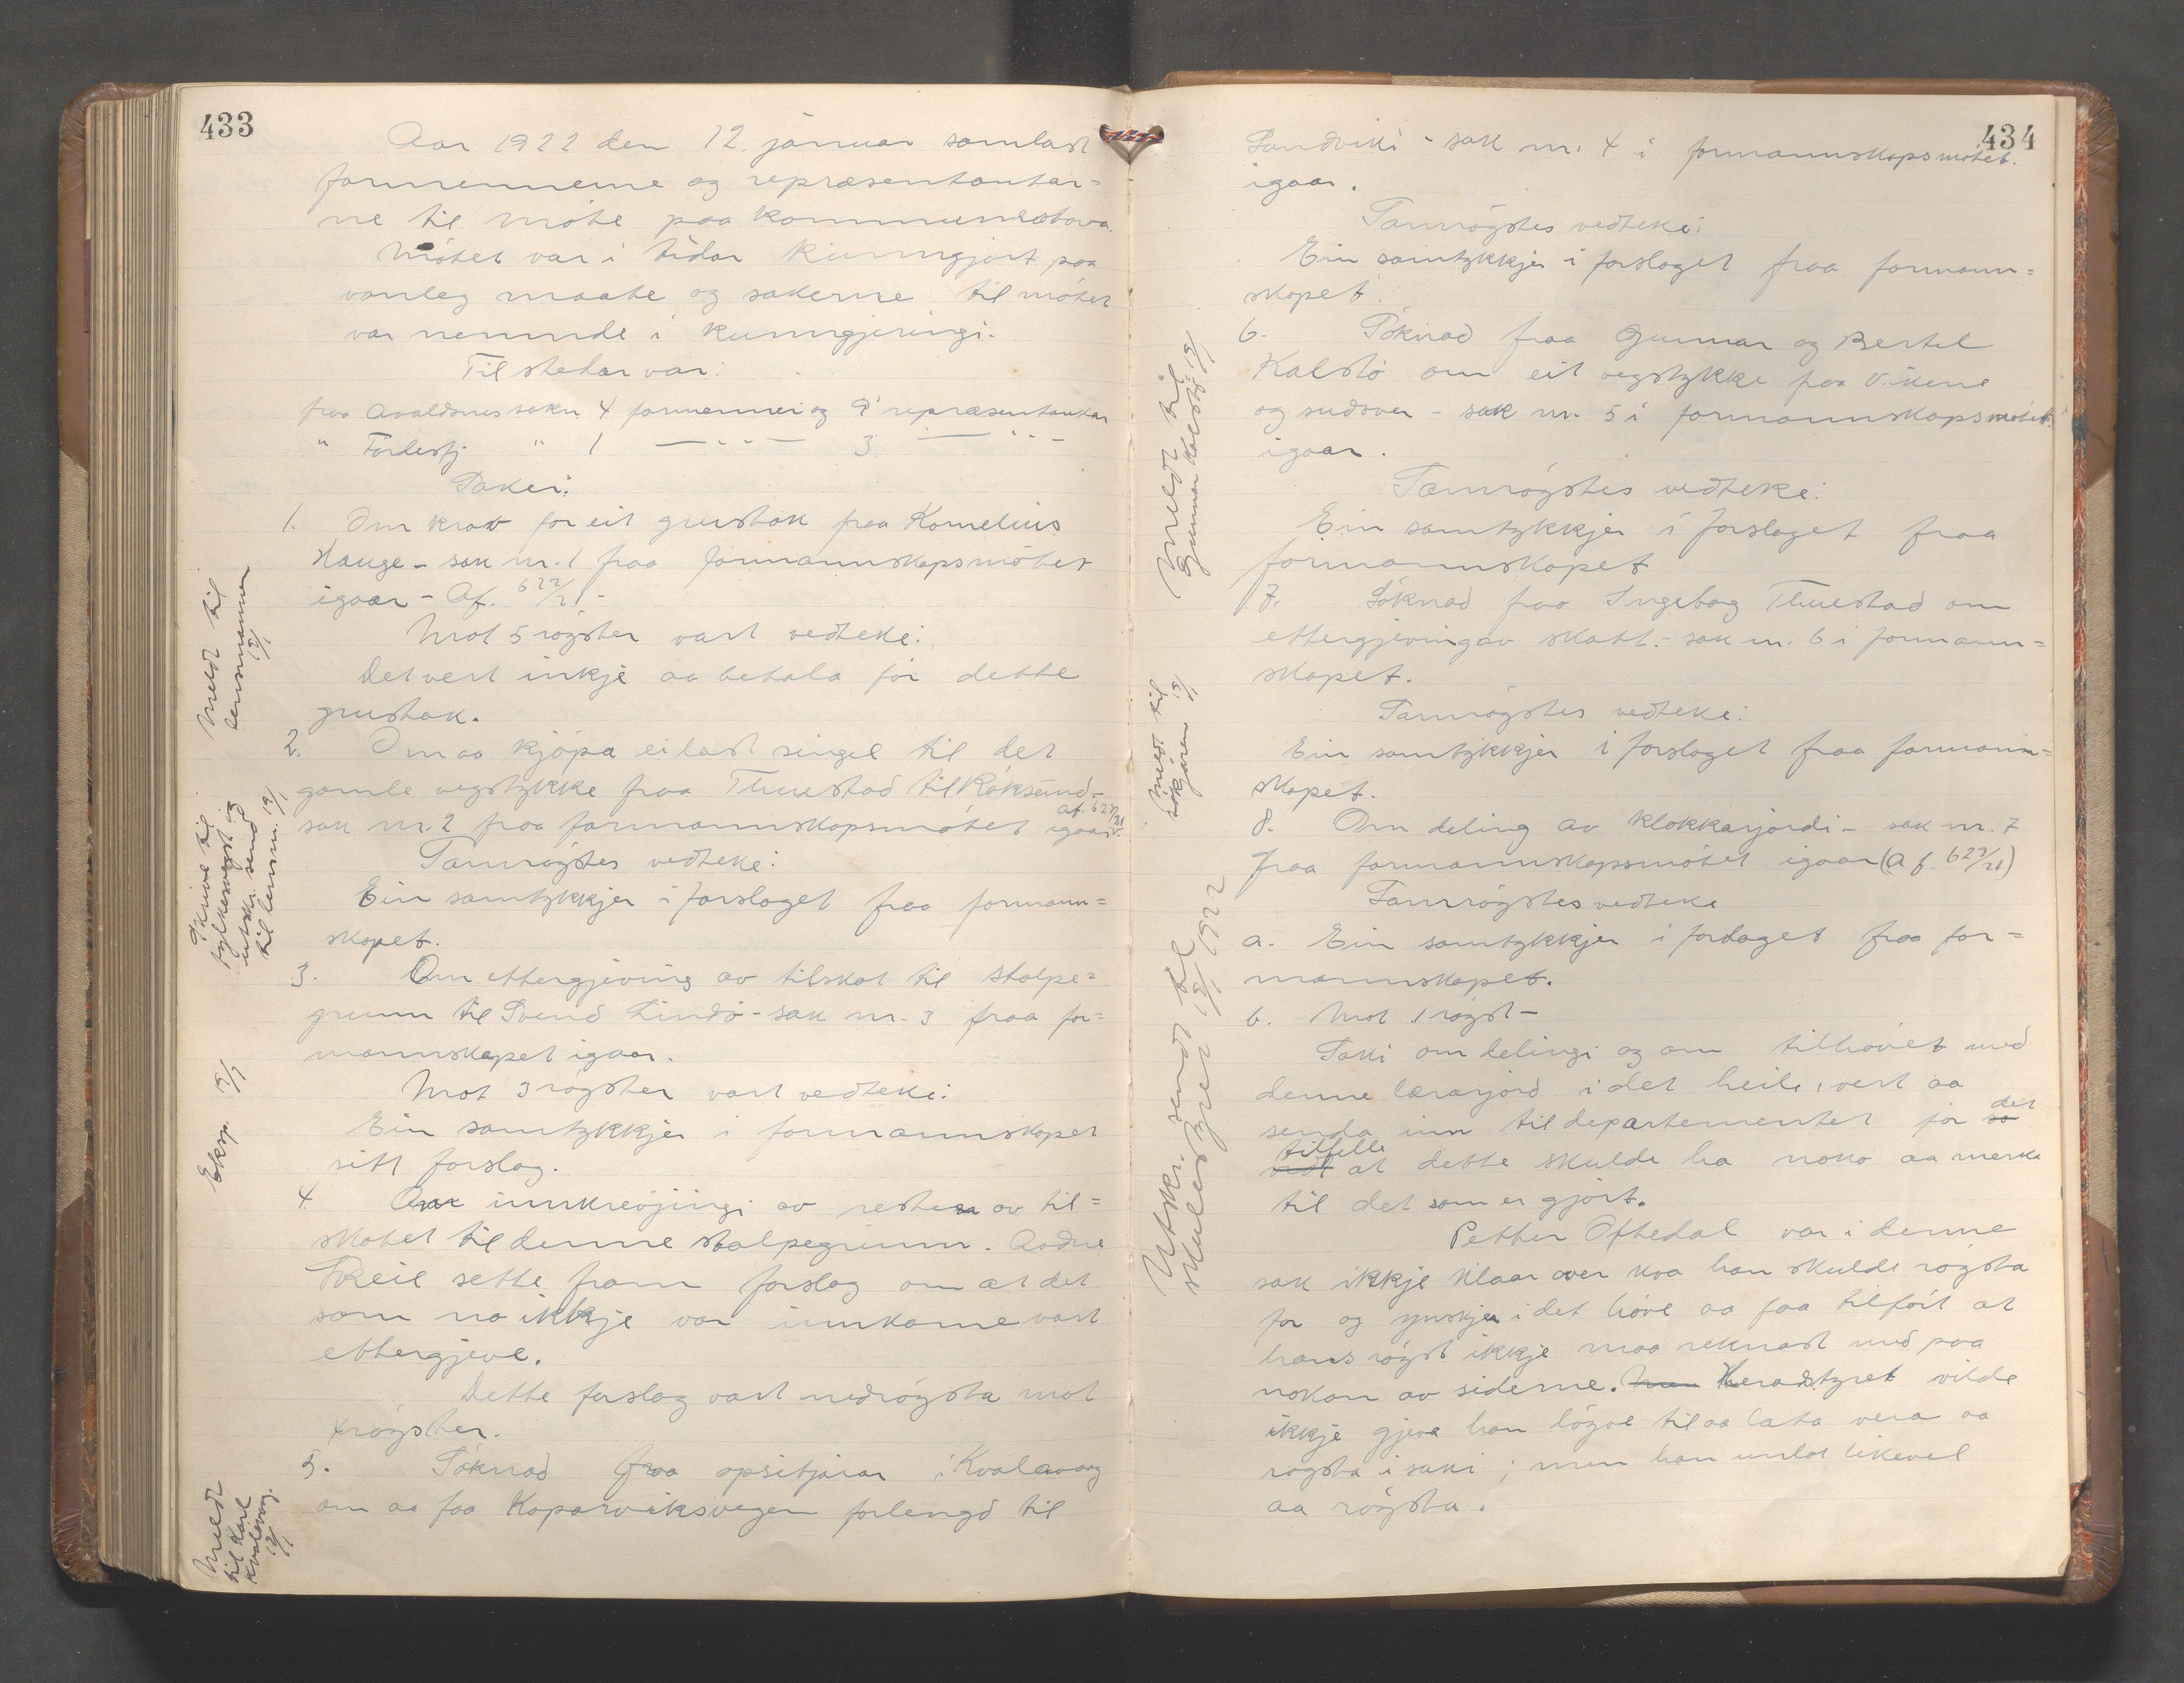 433
Aar 1922 den 12. januar samlast
formennerne og repræsentantar=
ne til møte paa kommunestova
Møtet var i tidar kunngjort paa
vanleg maate og sakerne til møtet
var nemnde i kunngjeringi.
Til stedar var:
fraa Avaldsnes sokn 4 formenner og 9 repræsentantar
" Fördesfj. " 1 — " — 3 — " —
Saker:
1. Om krav for eit grustak fraa Kornelius
Hauge - sak nr. 1 fraa formannskapsmøtet
igaar - Af. 622/21 -
Mot 5 røgster vart vedteke:
Det vert inkje aa betala for dette
grustak.
2. Om aa kjöpa ei last singel til det
gamle vegstykke fraa Thuestad til Röksund -
sak nr. 2 fraa formannskapsmøtet igaar Af. 627/21
Samrøgstes vedteke:
Ein samtykkjer i forslaget fraa formann=
skapet.
3. Om ettergjeving av tilskot til stolpe=
grunn til Svend Lindö - sak nr. 3 fraa for=
mannskapet igaar.
Mot 3 røgster vart vedteke:
Ein samtykkjer i formannskapet
sitt forslag.
4. Om innkrevjingi av resten av til=
skotet til denne stolpegrunn. Aadne
Skeie sette fram forslag om at det
som no ikkje var innkome vart
ettergjeve.
Dette forslag vart nedrøgsta mot
4 røgster.
5. Søknad fraa opsitjarar i Kvalavaag
om aa faa Koparviksvegen forlengd til
Meldt til
lensmannen
12/1
Skrive til
fylkesvegst. og
utskr. send
til lensm. 19/1
Eksp. 12/1
Meldt
til Karl
Kvalavaag.
12/1
434
Sandviki - sak nr. 4 i formannskapsmøtet
igaar.
Samrøgstes vedteke:
Ein samtykkjer i forslaget fraa formann=
skapet.
6. Søknad fraa Gunnar og Bertel
Kalstö om eit vegstykke fraa Vikene
og sudover - sak nr. 5 i formannskapsmøtet
igaar.
Samrøgstes vedteke:
Ein samtykkjer i forslaget fraa
formannskapet
7. Søknad fraa Ingebog Thuestad om
ettergjeving av skatt. - sak nr. 6 i formann=
skapet.
Samrøgstes vedteke:
Ein samtykkjer i forslaget fraa formann=
skapet.
8. Om deling av klokkarjordi - sak nr. 7
fraa formannskapsmøtet igaar (Af. 629/21)
Samrøgstes vedteke
a. Ein samtykkjer i forslaget fraa for=
mannskapet.
b. Mot 1 røgst -
Saki om delingi og om tilhøvet med
denne lærarjord i det heile, vert aa
senda inn til departementet for so det
vidt tilfelle at dette skulde ha noko aa merke
til det som er gjort.
Petter Oftedal var i denne
sak ikkje klaar over kva han skulde røgsta
for og ynskjer i det høve aa faa tilført at
hans røgst ikkje maa reknast med paa
nokon av siderne. Men Heradstyret vilde
ikkje gjeva han løgve til aa lata vera aa
røgsta i saki; men han unlot likevel
aa røgsta.
Meldt til
Gunnar Kalstö 12/1
Meldt til
søkjaren 12/1
Utskr. sendt til
skulestyret 12/1 1922